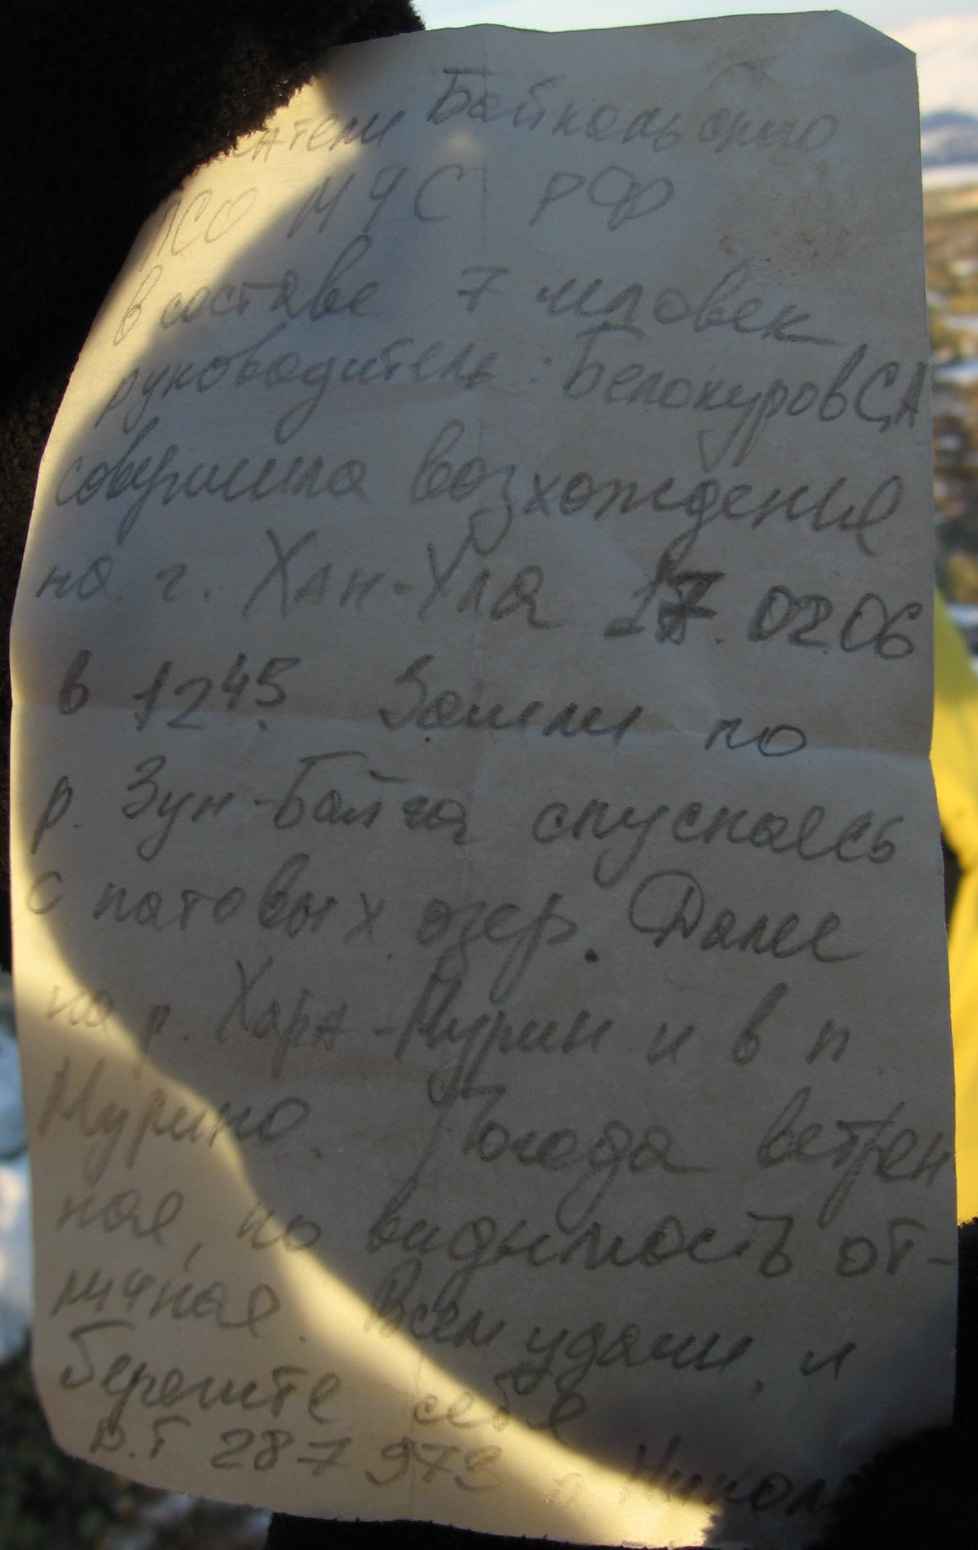 Байкальского
ПСО МЧС РФ
В составе 7 человек
руководитель: Белокуров С.А
совершила возхождение
на г. Хан-Ула 17.02.06
в 12 45. Зашли по
р. Зун-Байга спускаясь
с патовых озер. Далее
на р. Хара-Мурин и в п
Мурино. Погода ветрен
ная, но видимость от-
личная. Всем удачи, и
берегите себя
р.т 287 973 п